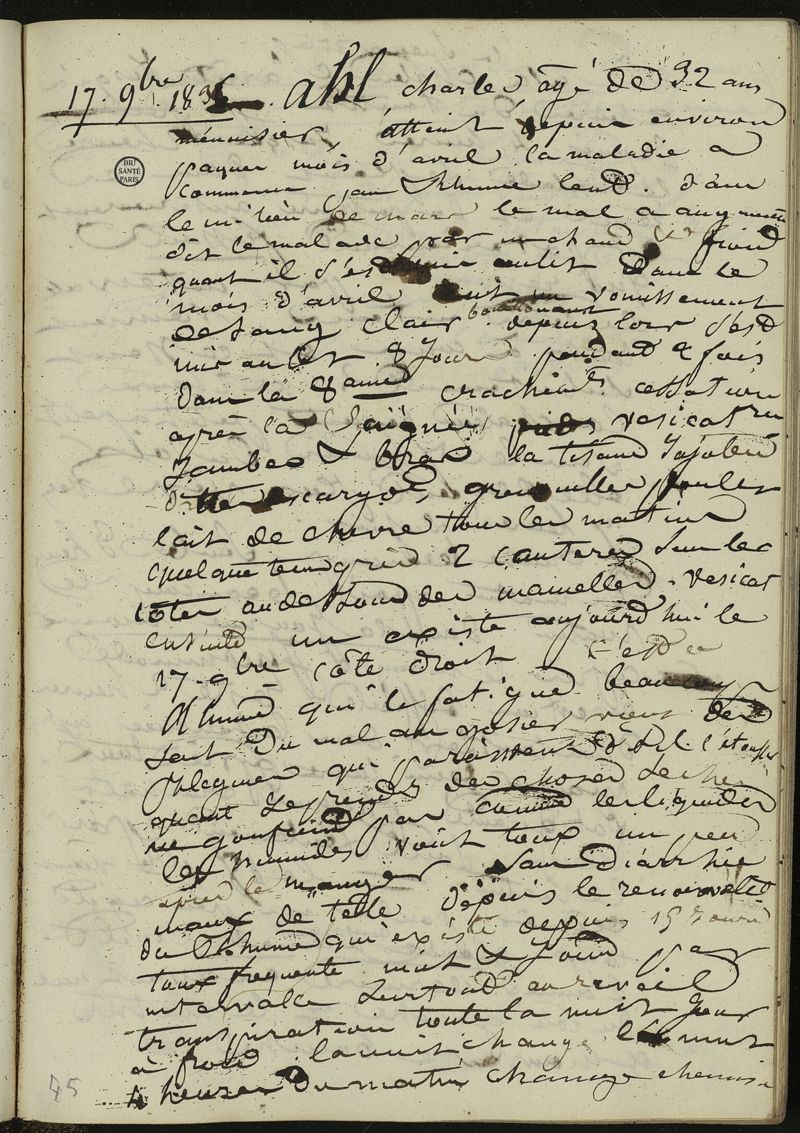 17. 9bre 183 ahl charles agé de 32 ans
ménuisier, attient depuis environ
paques mois d'avril la maladie a
commence par Rhume lent. dans
le milieu de mars le mal a augmenté
dit le malade par un chaud & froid
quant il s'est mis au lit dans le
mois d'avril eut un vomissement
de sang clair bouillonant depuis lors s'est
mis au lit 8 Jours pendant 2 fois
dans la 8aine crachemt cessation
après la Saignée vesicatre
Jambes & bras la tisane Jajubes
descargots grenouilles poulet
lait de chevre tous les matins
quelque tems près 2 cauteres sur les
côtes au dessous des mamelles. vesicat
ensuite un existe aujourd'hui le
17. 9bre côté droit c'est ce
Rhume qui le fatigue beaucoup
sent du mal au gosier des
phlegmes qui paraissent l'étouffer
quant Je prends des choses seches
ne gonfient pas comme les liquides
les humides voit toux un peu
après le manger Sans diarrhée
maux de tette depuis le renouvelt
du Rhume qui existe depuis 15 Jours
toux frequente nuit & Jour par
intervalle surtout au reveil
transpiration toute la nuit Jour
à froid la nuit change
4 heures du matin change chemise
BIU
SANTÉ
PARIS
45